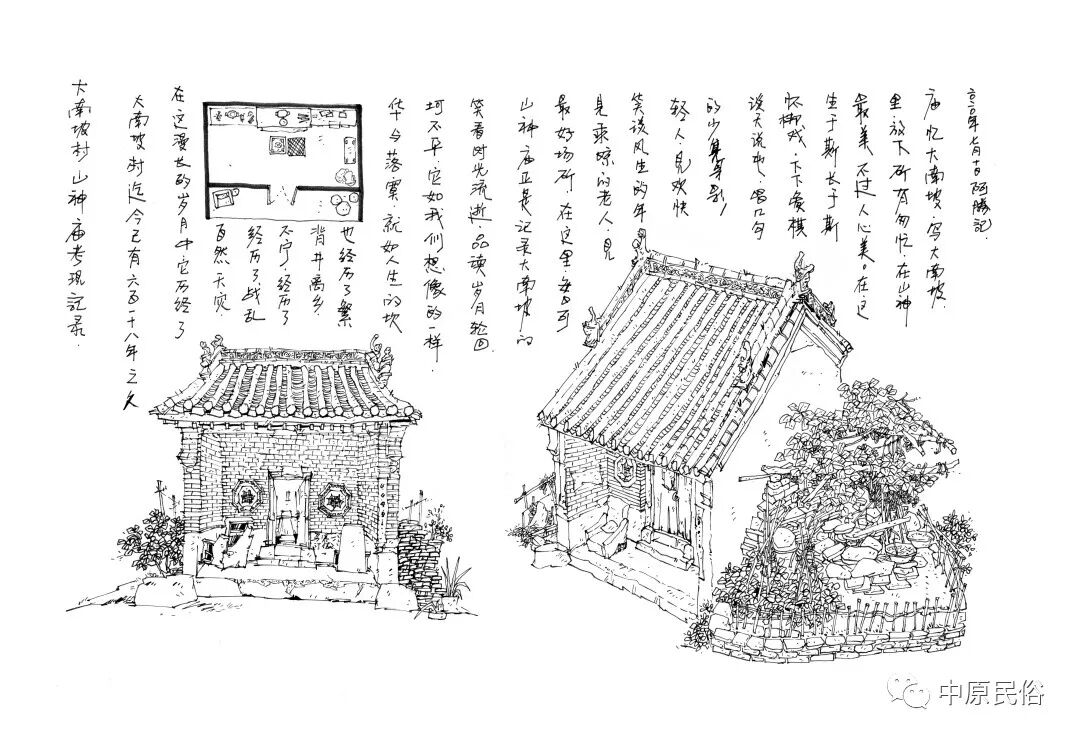 大南坡村山神庙考现記录.
大南坡村迄今已有六百一十八年之久
在这漫长的岁月中它历经了
自然天灾
经历了战乱
不宁,经历了
背井离乡
也经历了繁
华与落寞,就如人生的坎
坷不平,它如我们想像的一样.
笑看时光流逝,品读岁月轮回.
山神庙正是记录大南坡的
最好场所,在这里,每日可
见乘凉的老人,见
笑谈风生的年
轻人,见欢快
的少年身影
谈天说地,唱几句
怀梆戏,下下象棋
生于斯长于斯
最美不过人心美。在这
里放下所有匆忙,在山神
庙忆大南坡,写大南坡.
二〇二〇年七月十日阿勝記.
中原民俗